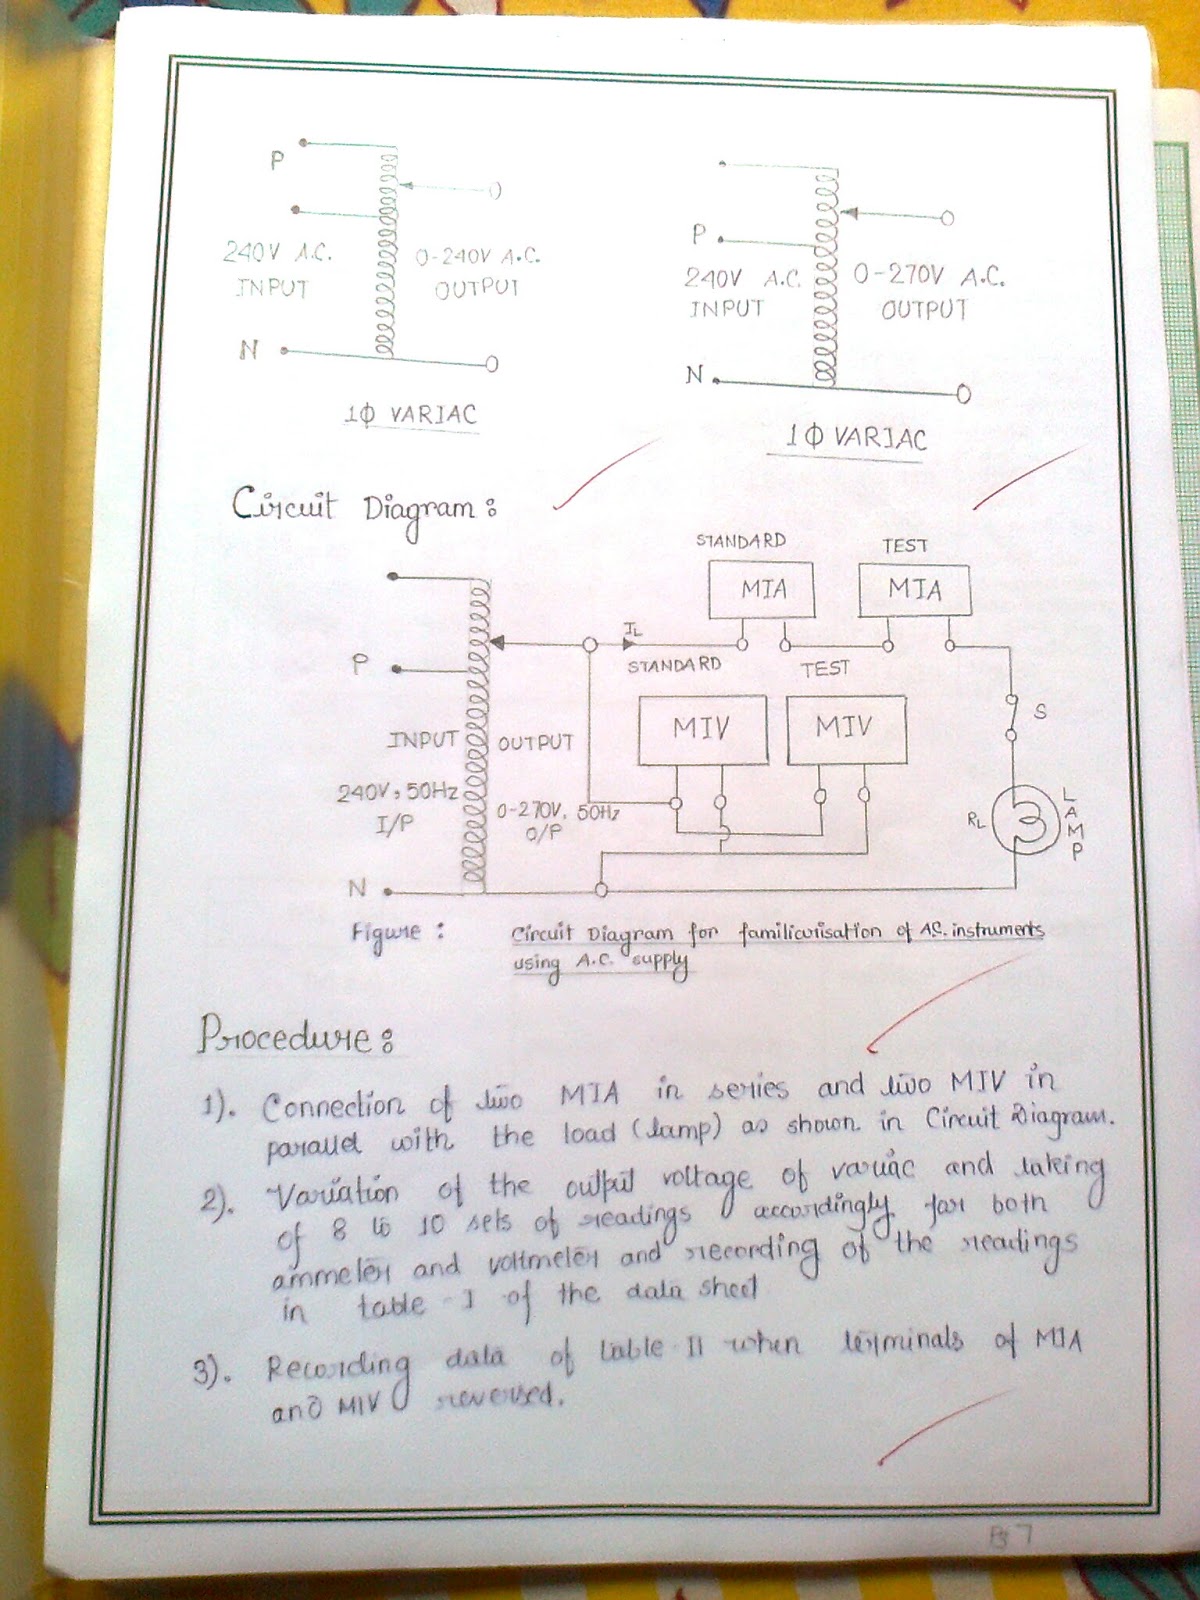 P
240V A.C.
INPUT
0-240V A.C.
OUTPUT
N
1Φ VARIAC
P
240V A.C.
INPUT
0-270V A.C.
OUTPUT
N
1Φ VARIAC
Circuit Diagram:
STANDARD
TEST
MIA
MIA
P
IL
STANDARD
TEST
MIV
MIV
S
INPUT
OUTPUT
240V, 50Hz
I/P
0-270V, 50Hz
O/P
RL
LAMP
N
Figure: Circuit Diagram for familiarisation of AC. instruments
using A.C. supply
Procedure:
1). Connection of two MIA in series and two MIV in
parallel with the load (lamp) as shown in Circuit Diagram.
2). Variation of the output voltage of variac and taking
of 8 to 10 sets of readings accordingly for both
ammeter and voltmeter and recording of the readings
in table-I of the data sheet
3). Recording data of table-II when terminals of MIA
and MIV reversed.
Pg 7